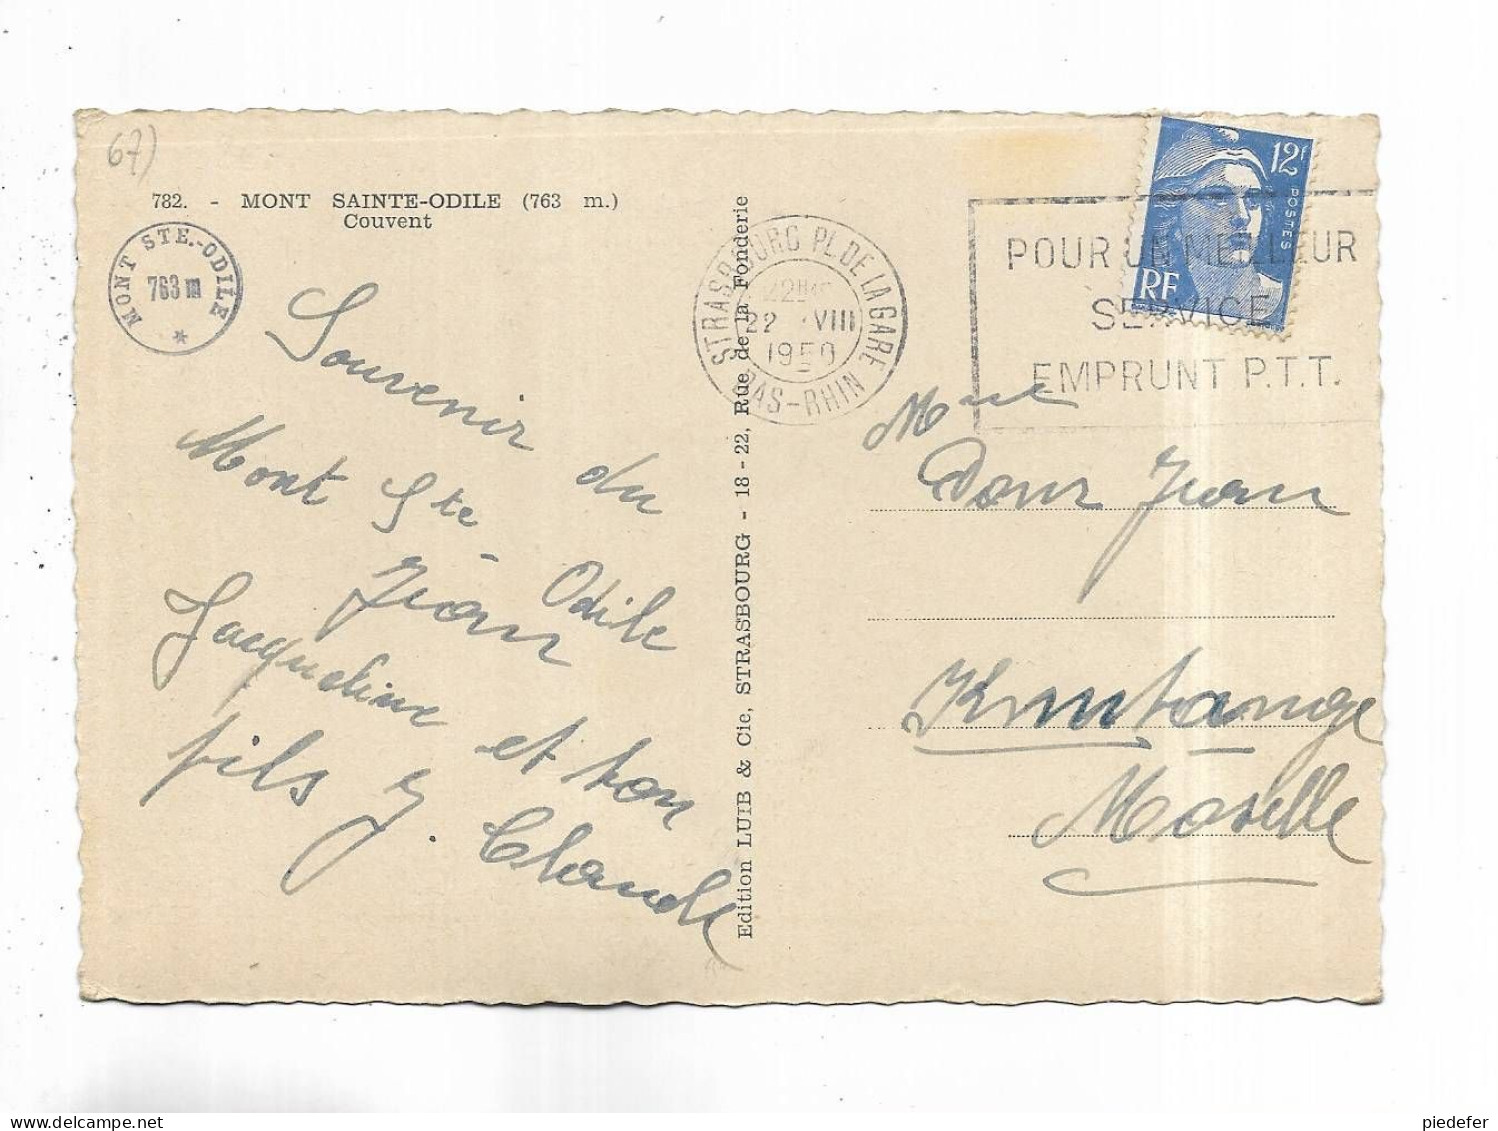 67)
782. - MONT SAINTE-ODILE (763 m.)
Couvent
MONT STE.-ODILE
763 m
*
Souvenir du
Mont Ste - Odile
Jean
Jacqueline et ton
fils J. Claude
Edition LUIB & Cie, STRASBOURG - 18 - 22, Rue de la Fonderie
STRASBOURG PL. DE LA GARE
22 VIII
1950
BAS-RHIN
12f
POSTES
RF
POUR UN MEILLEUR
SERVICE
EMPRUNT P.T.T.
Jean
Moselle
piedefer